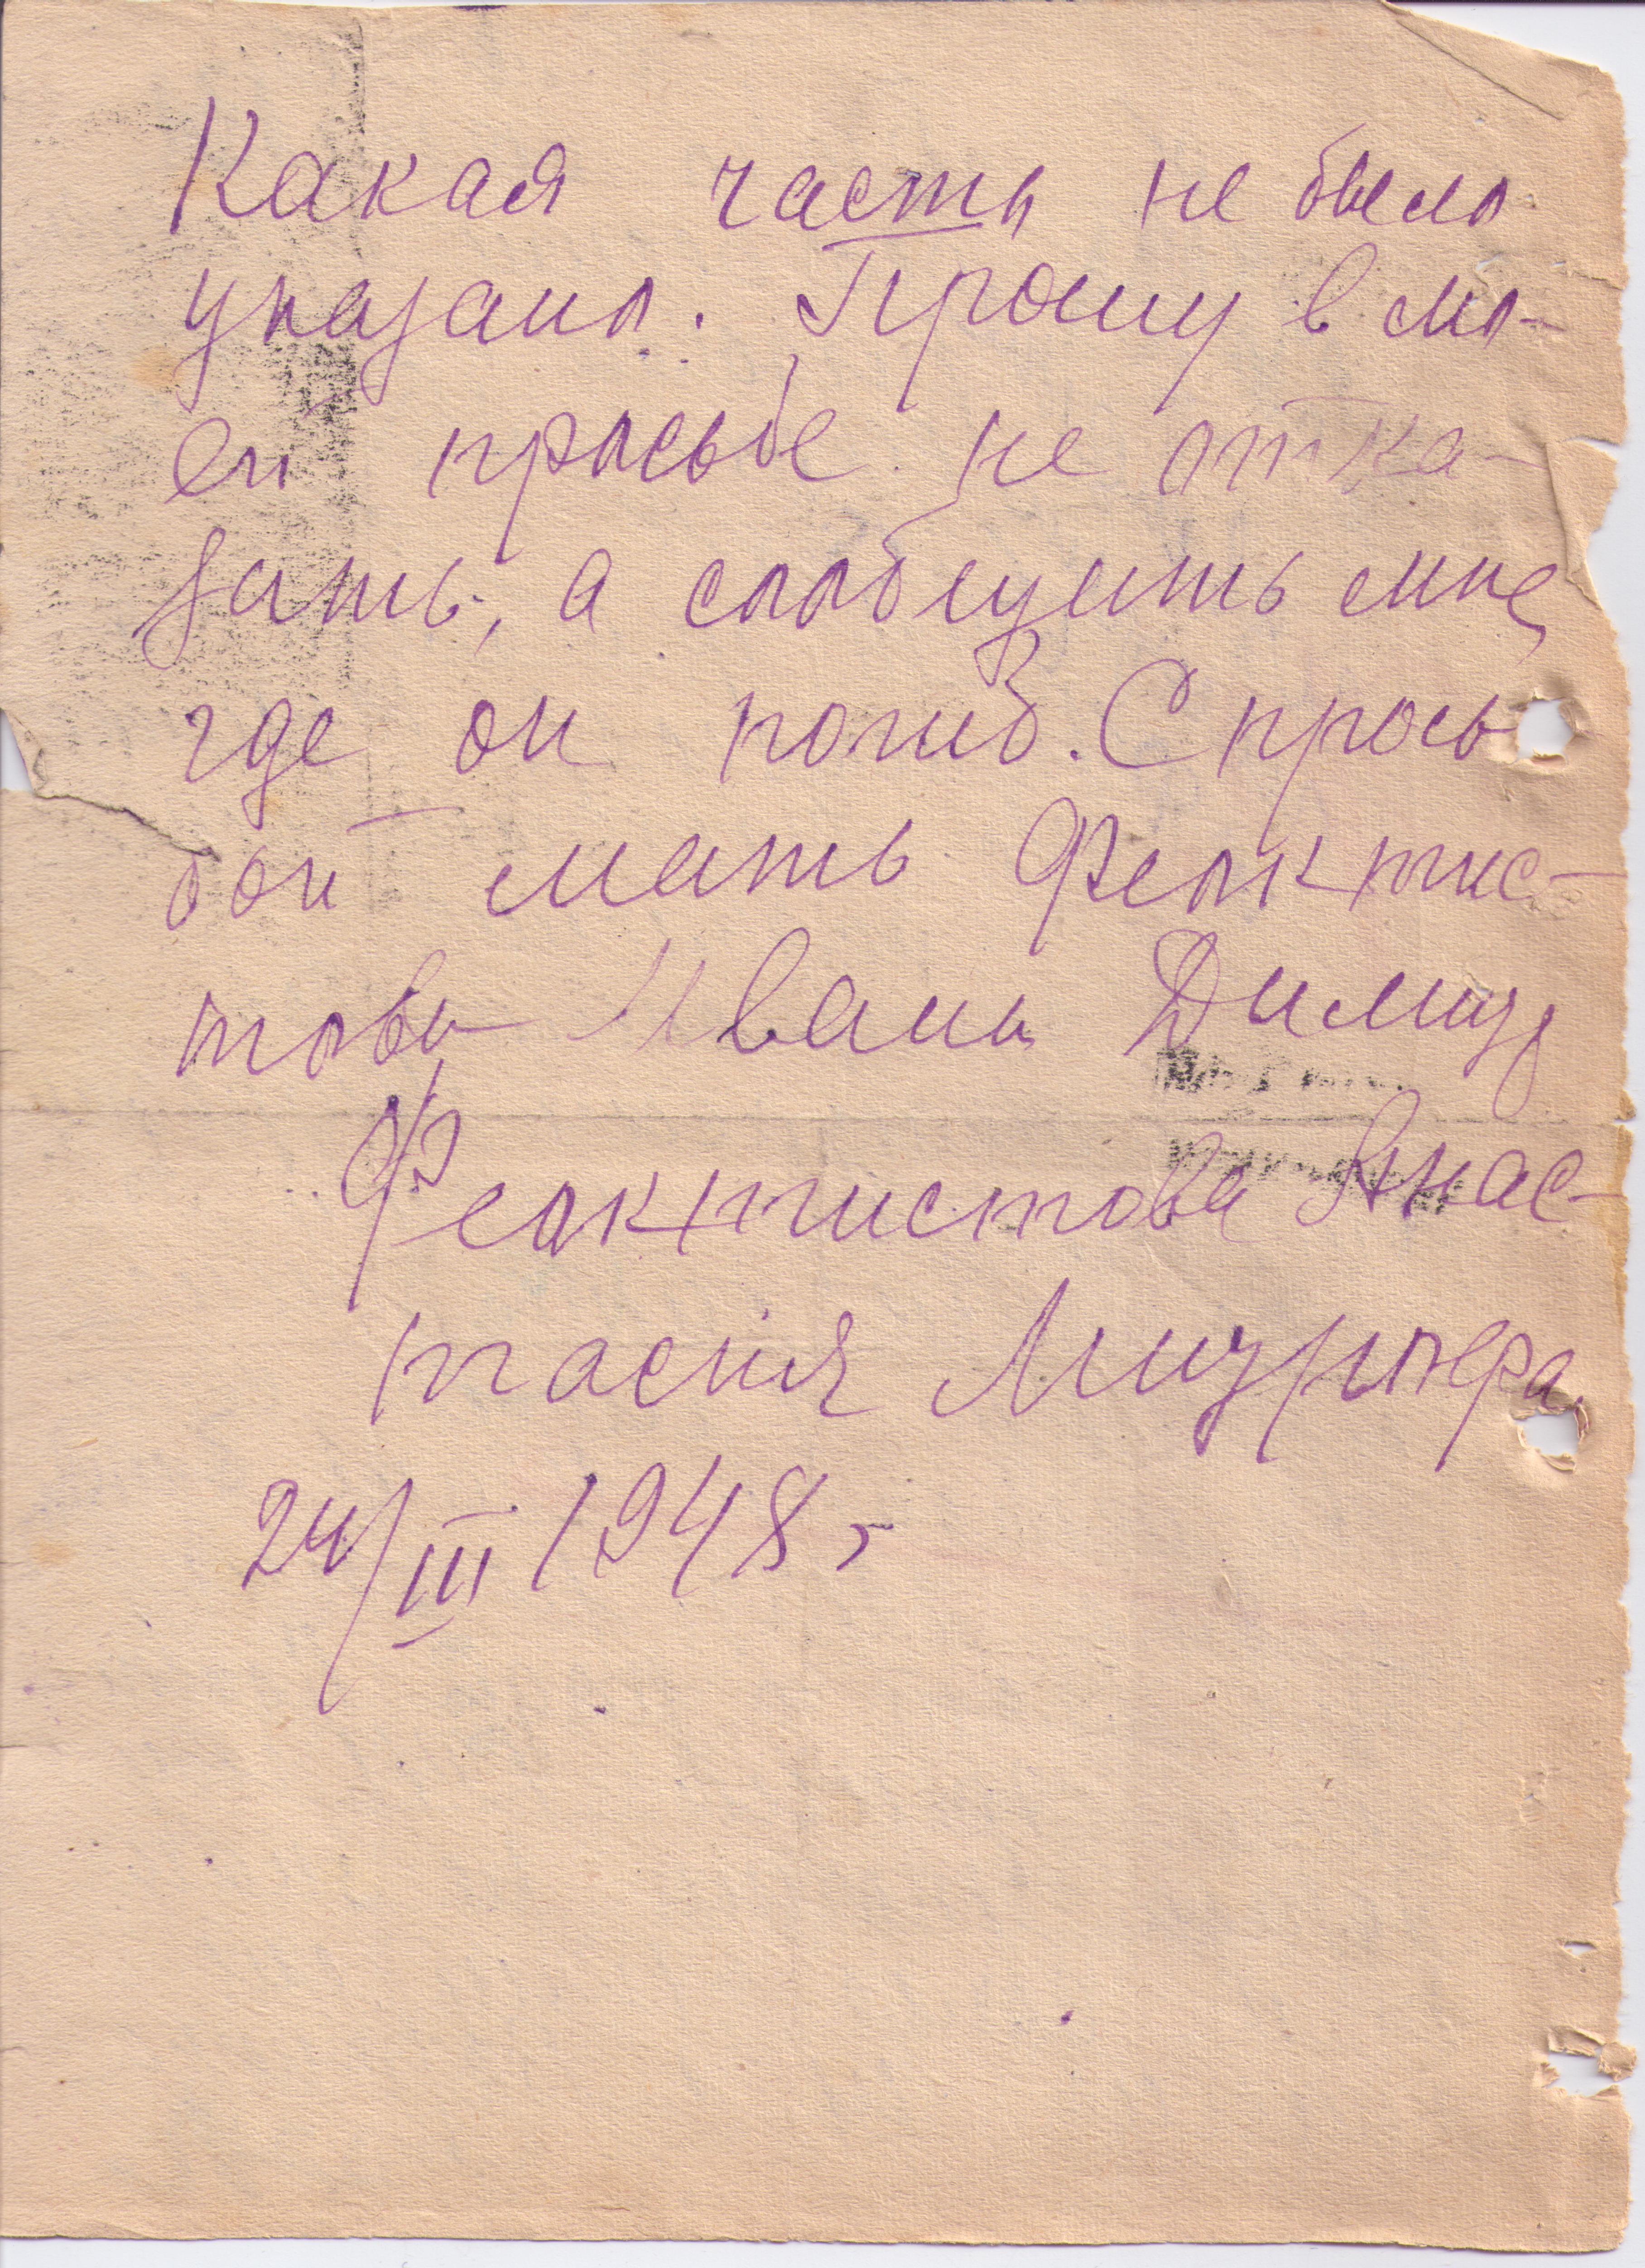 Какая часть не было
указано. Прошу в мо-
ей просьбе не отка-
зать, а сообщить мне
где он погиб. С прось
бой мать Феоктис-
това Ивана
Феоктистова Анас-
тасия
24/III 1948 г